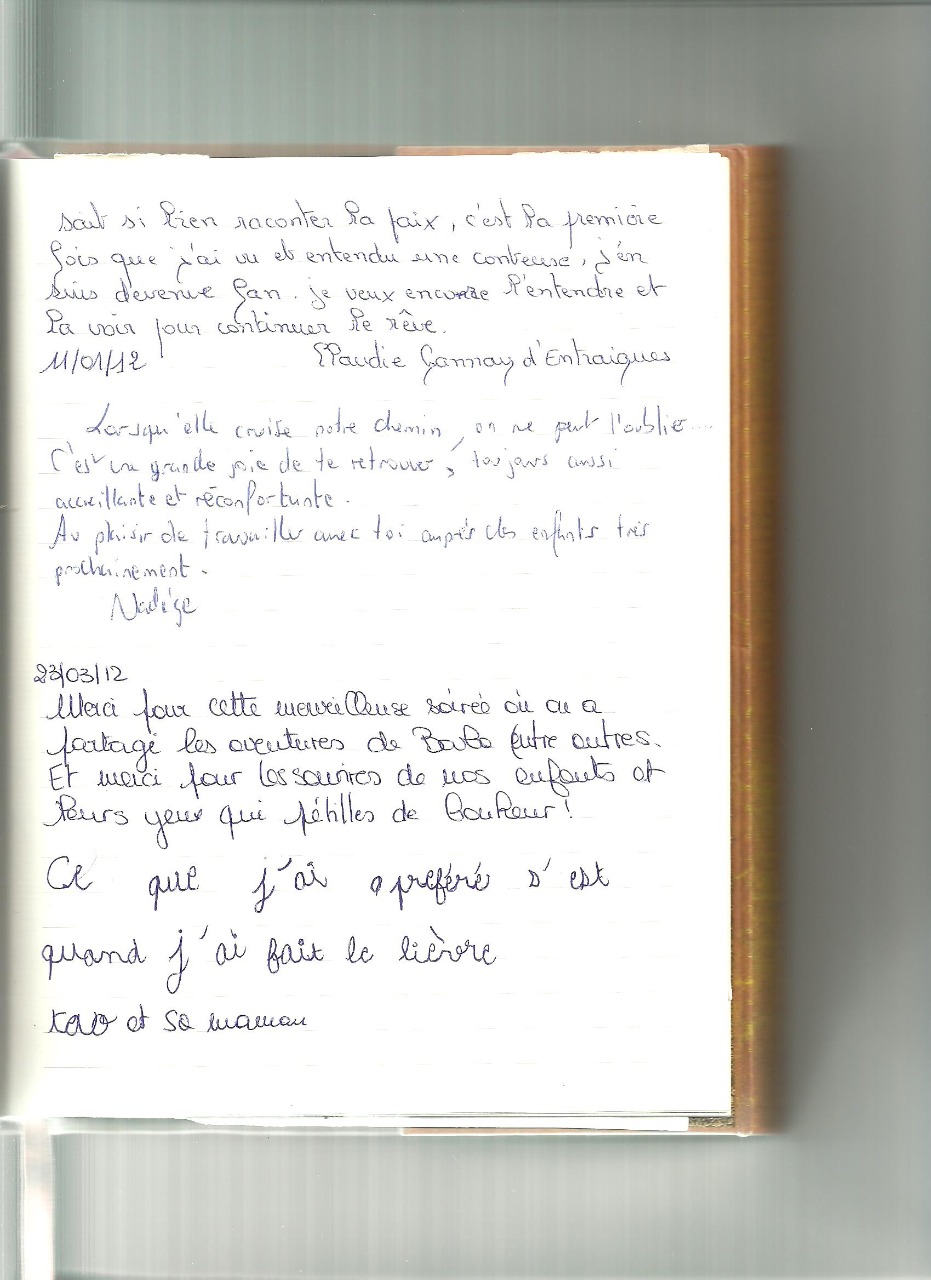 sait si bien raconter la paix, c'est la première
fois que j'ai vu et entendu une conteuse, j'en
suis devenue fan. je veux encore l'entendre et
la voir pour continuer le rêve.
11/01/12 Claudie d'Entraigues
Lorsqu'elle croise notre chemin, on ne peut l'oublier....
C'est une grande joie de te retrouver, toujours aussi
accueillante et réconfortante.
Au plaisir de travailler avec toi auprès des enfants très
prochainement.
Nadège
23/03/12
Merci pour cette merveilleuse soirée où on a
partagé les aventures de entre autres.
Et merci pour les sourires de nos enfants et
leurs yeux qui pétilles de bonheur!
Ce que j'ai préféré s'est
quand j'ai fait le lièvre
et sa maman